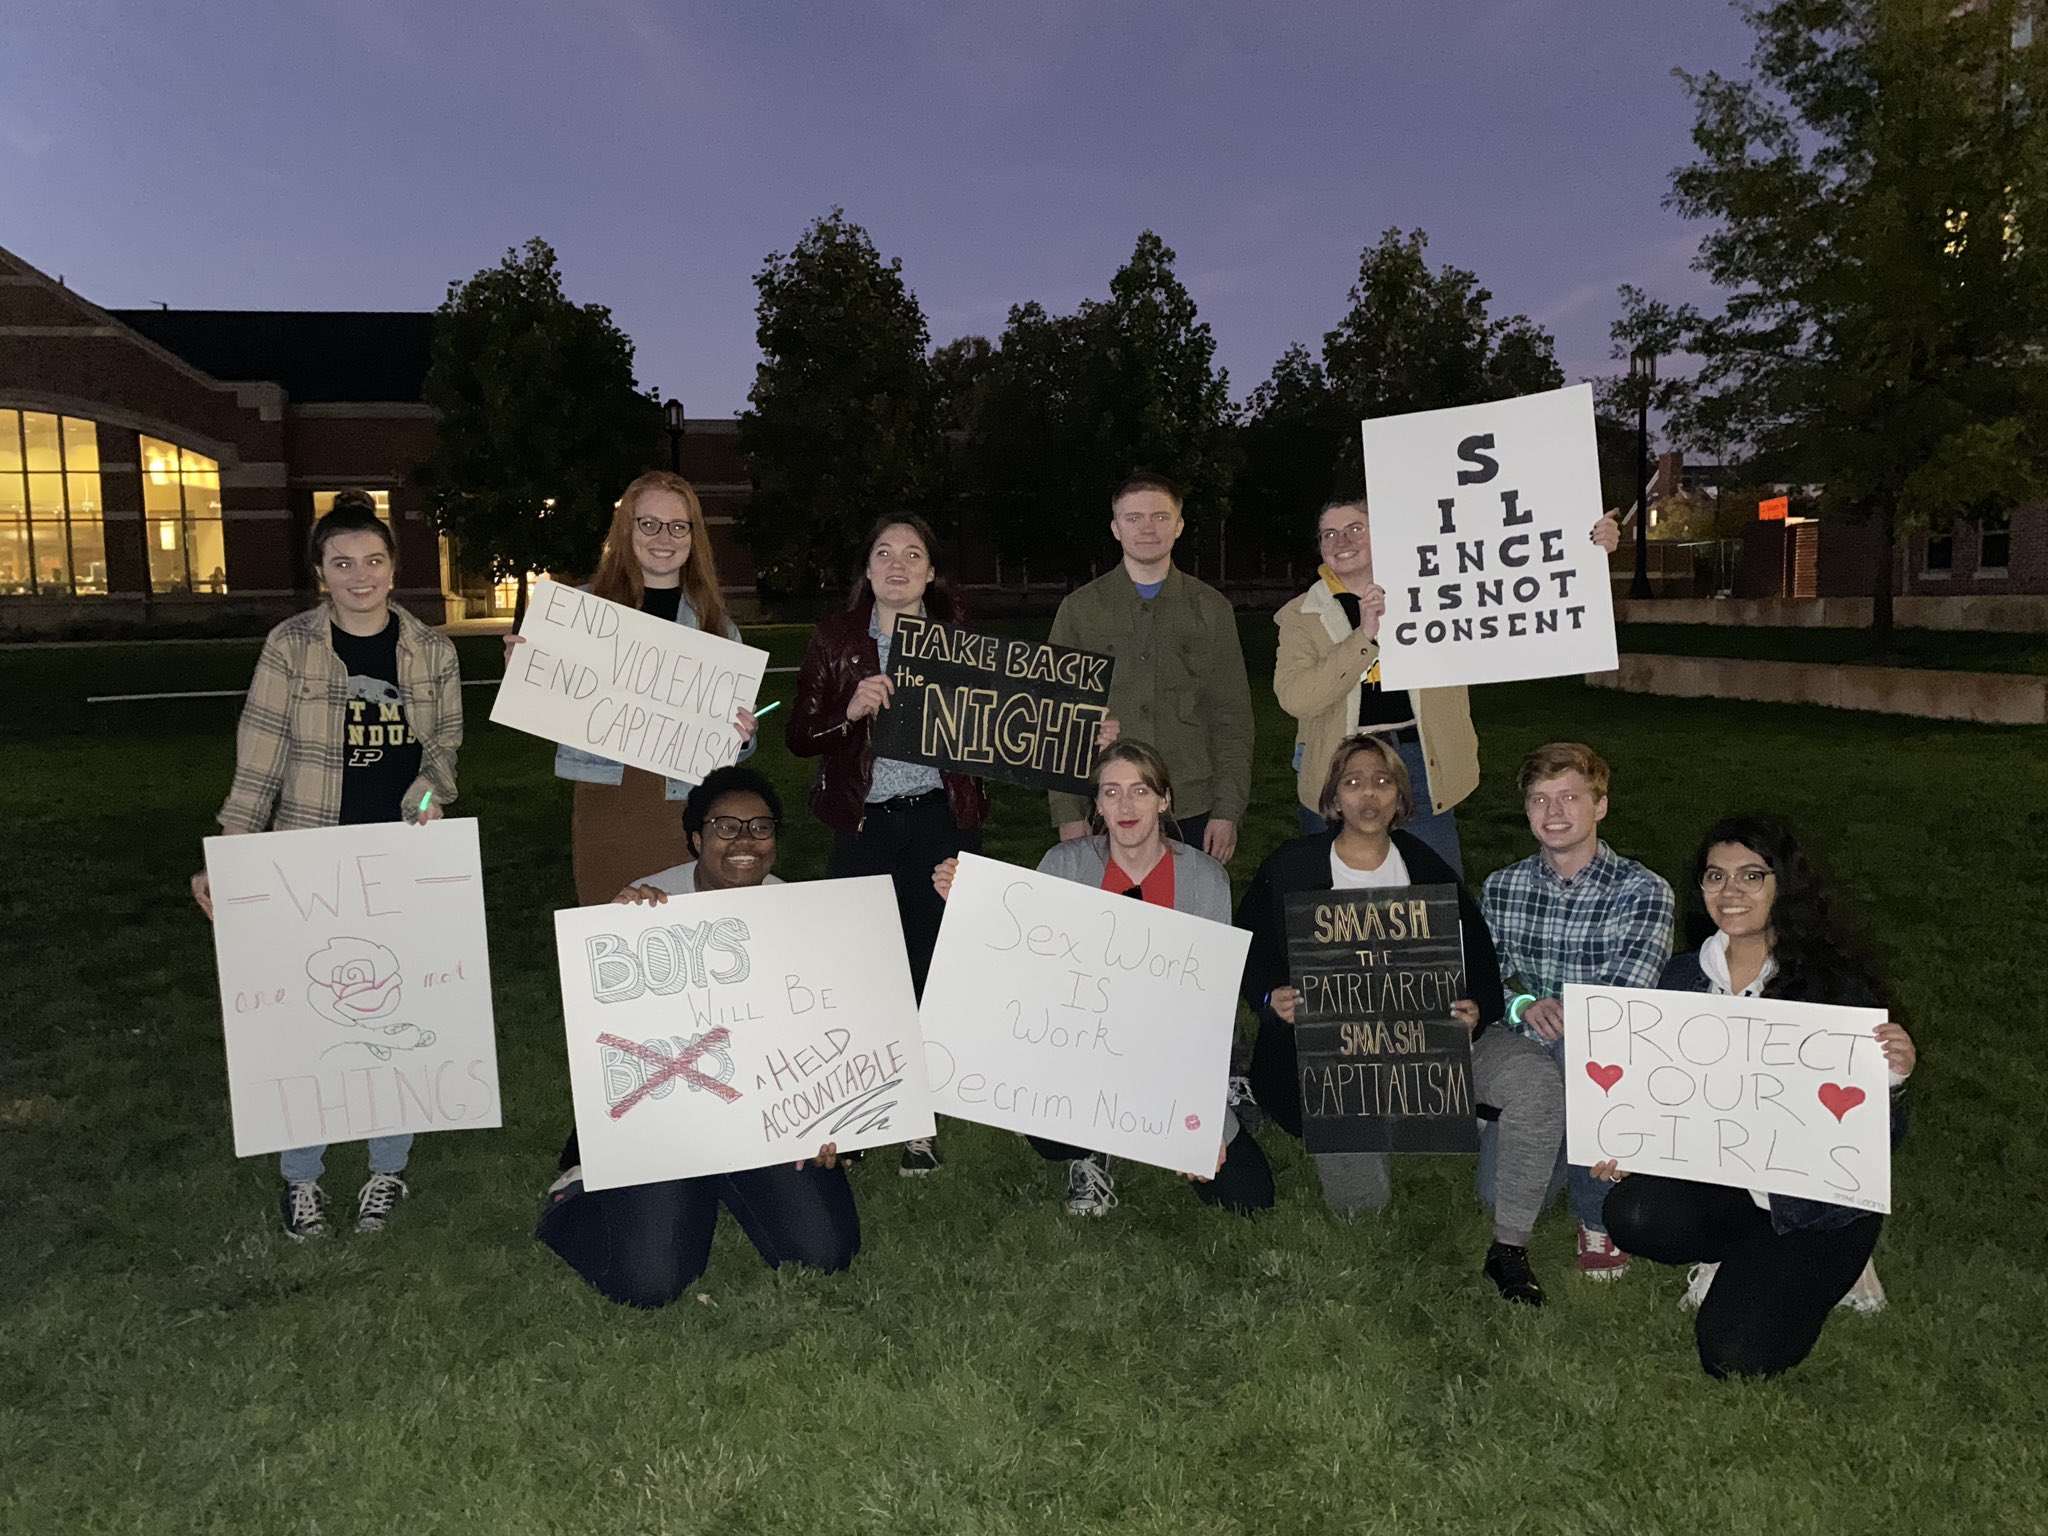 END VIOLENCE
END CAPITALISM
TAKE BACK
the NIGHT
S
I L
ENCE
ISNOT
CONSENT
P
- WE -
are not
THINGS
BOYS
WILL BE
BOYS ^ HELD
ACCOUNTABLE
Sex Work
IS
Work
Decrim Now!
SMASH
THE
PATRIARCHY
SMASH
CAPITALISM
PROTECT
OUR
GIRLS